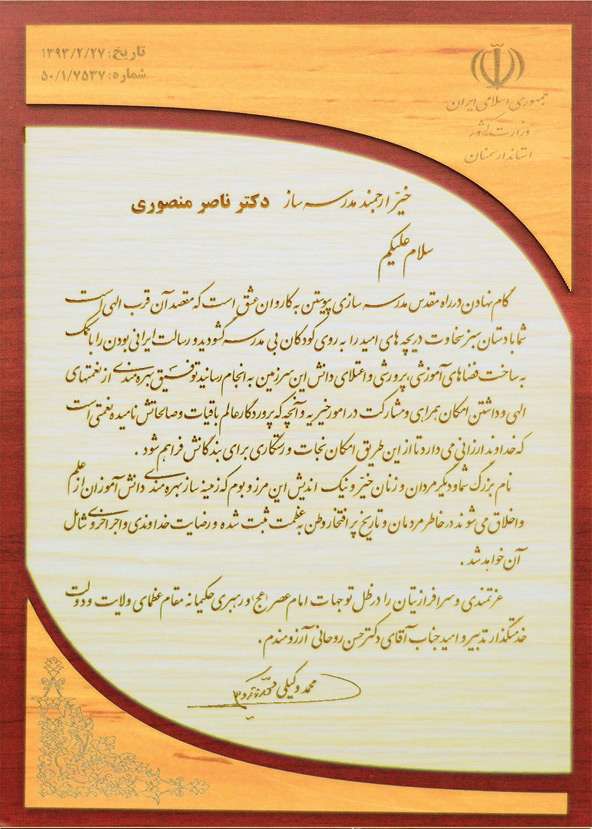 تاریخ: ۱۳۹۳/۲/۲۷
شماره: ۵۰/۱/۷۵۳۷
جمهوری اسلامی ایران
وزارت کشور
استاندار سمنان
خیّر ارجمند مدرسه ساز دکتر ناصر منصوری
سلام علیکم
گام نهادن در راه مقدس مدرسه سازی پیوستن به کاروان عشق است که مقصد آن قرب الهی است
شما با دستان سبز سخاوت دریچه های امید را به روی کودکان بی مدرسه گشودید و رسالت ایرانی بودن را با کمک
به ساخت فضاهای آموزشی، پرورشی و اعتلای دانش این سرزمین به انجام رسانید توفیق بهره مندی از نعمتهای
الهی و داشتن امکان همراهی و مشارکت در امور خیریه و آنچه که پروردگار عالم باقیات و صالحاتش نامیده نعمتی است
که خداوند ارزانی می دارد تا از این طریق امکان نجات و رستگاری برای بندگانش فراهم شود .
نام بزرگ شما و دیگر مردان و زنان خیّر و نیک اندیش این مرز و بوم که زمینه ساز بهره مندی دانش آموزان از علم
و اخلاق می شوند در خاطر مردمان و تاریخ پر افتخار وطن به عظمت ثبت شده و رضایت خداوندی و اجر اخروی شامل
آن خواهد شد .
عزتمندی و سرافرازیتان را در ظل توجهات امام عصر (عج) و رهبری حکیمانه مقام عظمای ولایت و دولت
خدمتگذار تدبیر و امید جناب آقای دکتر حسن روحانی آرزومندم .
محمد وکیلی